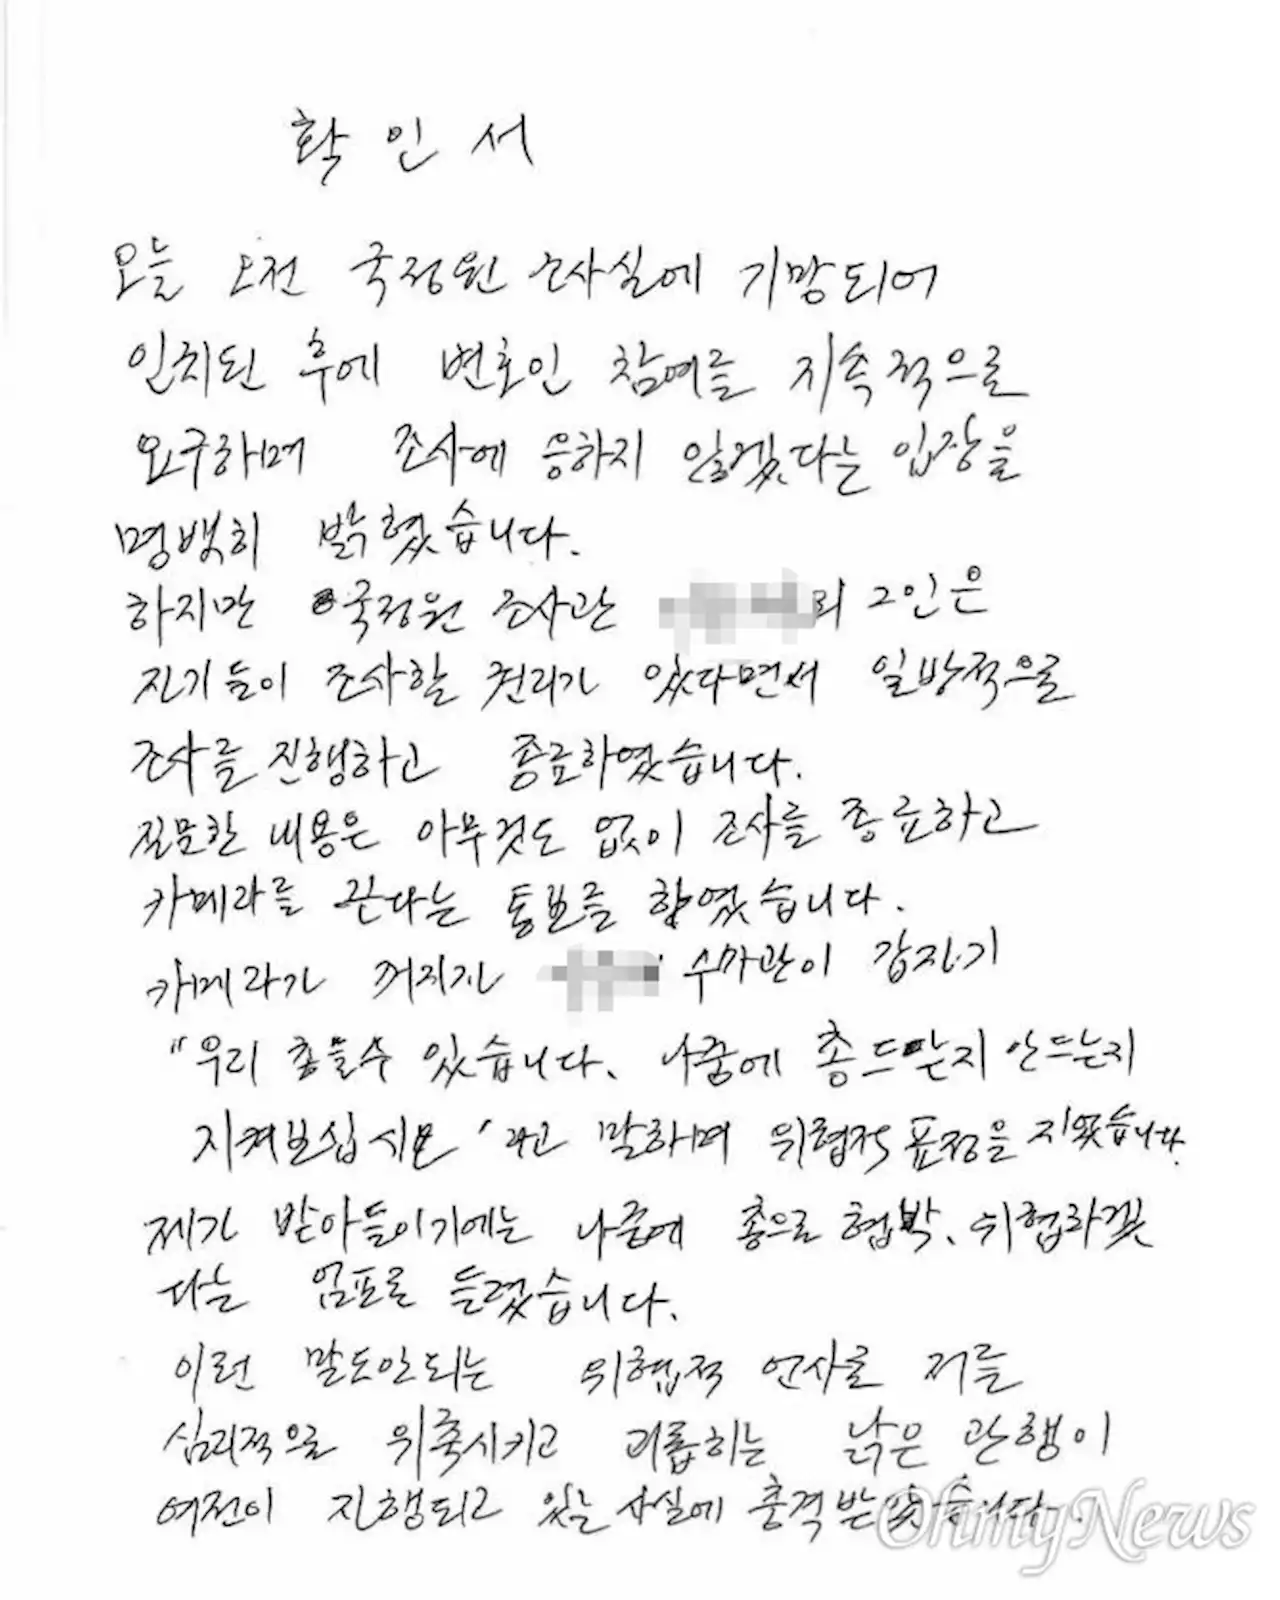 확인서
오늘 오전 국정원 조사실에 기망되어
인치된 후에 변호인 참여를 지속적으로
요구하며 조사에 응하지 않겠다는 입장을
명백히 밝혔습니다.
하지만 국정원 조사관 외 2인은
자기들이 조사할 권리가 있다면서 일방적으로
조사를 진행하고 종료하였습니다.
질문한 내용은 아무것도 없이 조사를 종료하고
카메라를 끈다는 통보를 하였습니다.
카메라가 꺼지자 수사관이 갑자기
"우리 총 들 수 있습니다. 나중에 총 드는지 안드는지
지켜보십시오"라고 말하며 위협적 표정을 지었습니다.
제가 받아들이기에는 나중에 총으로 협박, 위협하겠
다는 엄포로 들렸습니다.
이런 말도안되는 위협적 언사로 저를
심리적으로 위축시키고 괴롭히는 낡은 관행이
여전이 진행되고 있는 사실에 충격받았습니다.
OhmyNews